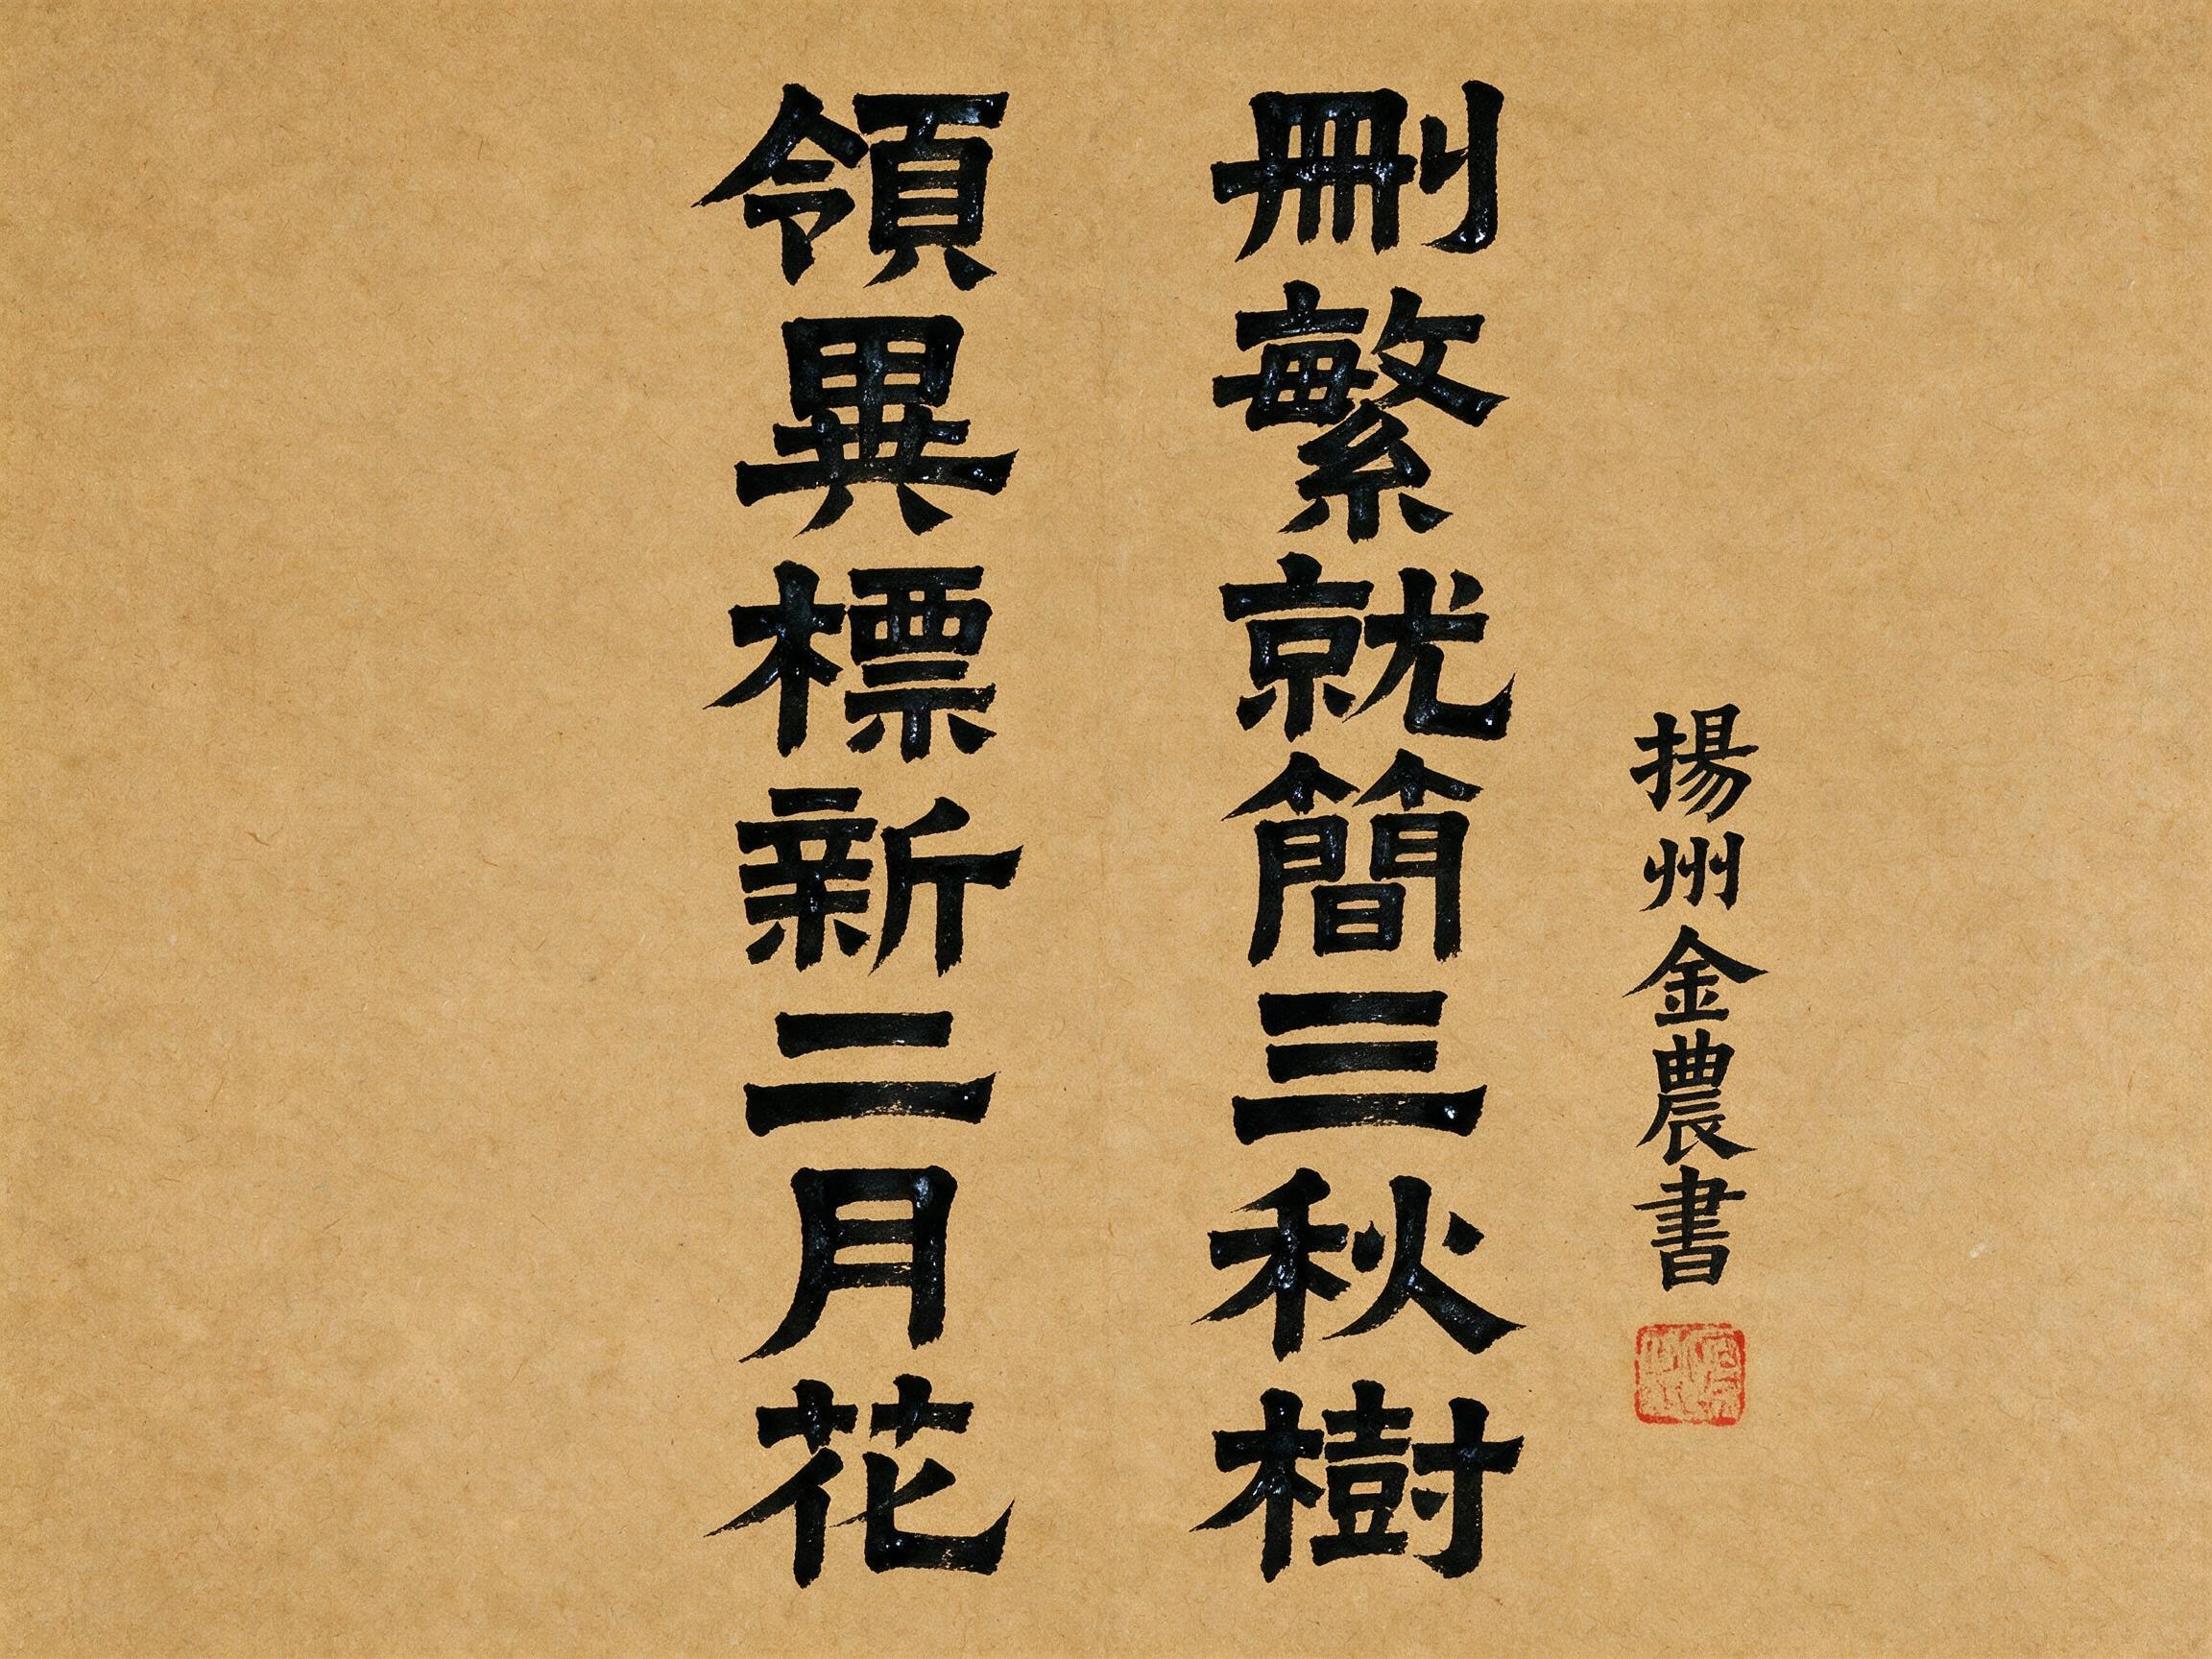 刪繁就簡三秋樹
領異標新二月花
揚州金農書